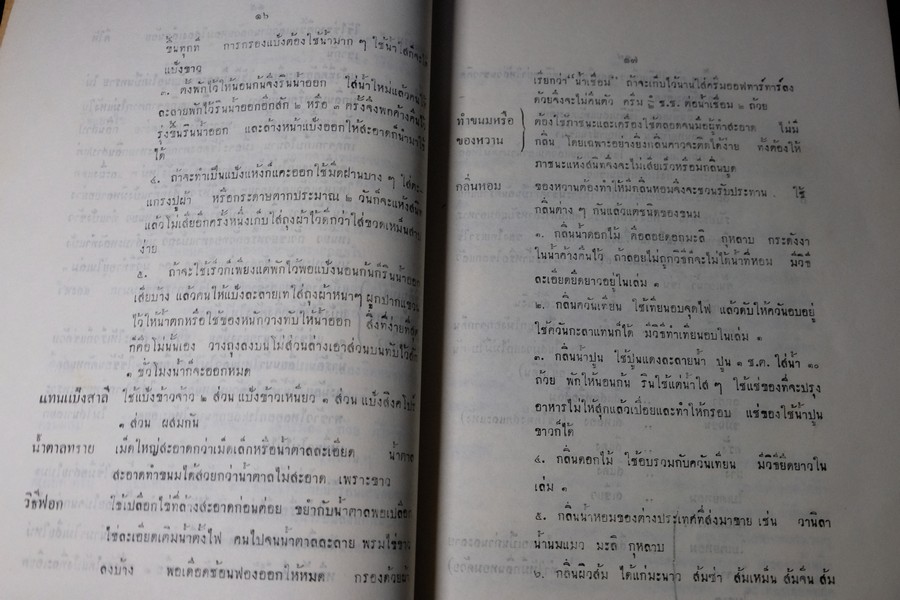 ๑๖
ขึ้นทุกที การกรองแป้งต้องใช้น้ำมาก ๆ ใช้น้ำใสก็จะได้
แป้งขาว
๓. ตั้งพักไว้ให้นอนก้นจึงรินน้ำออก ใส่น้ำใหม่แล้วคนให้
ละลายพักไว้รินน้ำออกอีกสัก ๒ หรือ ๓ ครั้งจึงพักค้างคืนไว้
รุ่งขึ้นรินน้ำออก และล้างหน้าแป้งออกให้สะอาดก็นำมาใช้
ได้
๔. ถ้าจะทำเป็นแป้งแห้งก็แคะออกใช้มีดฝานบาง ๆ ใส่ตะ
แกรงปูผ้า หรือกระดาษตากประมาณ ๒ วันก็จะแห้งสนิท
แล้วโม่เสียอีกครั้งหนึ่งเก็บใส่ถุงผ้าไว้ดีกว่าใส่ขวดเหม็นสาบ
ง่าย
๕. ถ้าจะใช้เร็วก็เพียงแต่พักไว้พอแป้งนอนก้นก็รินน้ำออก
เสียบ้าง แล้วคนให้แป้งละลายเทใส่ถุงผ้าหนาๆ ผูกปากแขวน
ไว้ให้น้ำตกหรือใช้ของหนักวางทับให้น้ำออก สิ่งที่ง่ายที่สุด
ก็คือโม่นั้นเอง วางถุงลงบนโม่ส่วนล่างเอาส่วนบนทับไว้สัก
๑ ชั่วโมงน้ำก็จะออกหมด
แทนแป้งสาลี ใช้แป้งข้าวจ้าว ๒ ส่วน แป้งข้าวเหนียว ๑ ส่วน แป้งสิงคโปร์
๑ ส่วน ผสมกัน
น้ำตาลทราย เม็ดใหญ่สะอาดกว่าเม็ดเล็กหรือน้ำตาลละเอียด น้ำตาล
สะอาดทำขนมได้สวยกว่าน้ำตาลไม่สะอาด เพราะขาว
วิธีฟอก ใช้เปลือกไข่ที่ล้างสะอาดก่อนต่อย ขยำกับน้ำตาลพอเปลือก
ไข่ละเอียดเติมน้ำตั้งไฟ คนไปจนน้ำตาลละลาย พรมไข่ขาว
ลงบ้าง พอเดือดร้อนฟองออกให้หมด กรองด้วยผ้า
๑๗
เรียกว่า "น้ำเชื่อม" ถ้าจะเก็บไว้นานใส่ครีมออฟทาร์ทาร์ลง
ด้วยจึงจะไม่คืนตัว ครีม ช.ช. ต่อน้ำเชื่อม ๒ ถ้วย
ทำขนมหรือ ต้องใช้ภาชนะและเครื่องใช้ตลอดจนมือผู้ทำสะอาด ไม่มี
ของหวาน กลิ่น โดยเฉพาะอย่างยิ่งกลิ่นคาวจะติดได้ง่าย ทั้งต้องให้
ภาชนะแห้งสนิทจึงจะไม่เสียเร็วหรือมีกลิ่นบูด
กลิ่นหอม ของหวานต้องทำให้มีกลิ่นหอมจึงจะชวนรับประทาน ใช้
กลิ่นต่าง ๆ กันแล้วแต่ชนิดของขนม
๑. กลิ่นน้ำดอกไม้ คือลอยดอกมะลิ กุหลาบ กระดังงา
ในน้ำค้างคืนไว้ ถ้าลอยไม่ถูกวิธีก็จะไม่ได้น้ำที่หอม มีวิธี
ละเอียดยืดยาวอยู่ในเล่ม ๑
๒. กลิ่นควันเทียน ใช้เทียนอบจุดไฟ แล้วดับให้ควันอบอยู่
ใช้ควันกะลาแทนก็ได้ มีวิธีทำเทียนอบในเล่ม ๑
๓. กลิ่นน้ำปูน ใช้ปูนแดงละลายน้ำ ปูน ๑ ช.ต. ใส่น้ำ ๑๐
ถ้วย พักให้นอนก้น รินใช้แต่น้ำใส ๆ ใช้แช่ของที่จะปรุง
อาหารไม่ให้สุกแล้วเปื่อยและทำให้กรอบ แช่ของใช้น้ำปูน
ขาวก็ได้
๔. กลิ่นดอกไม้ ใช้อบรวมกับควันเทียน มีวิธียืดยาวใน
เล่ม ๑
๕. กลิ่นน้ำหอมของต่างประเทศที่ส่งมาขาย เช่น วานิลา
น้ำนมแมว มะลิ กุหลาบ
๖. กลิ่นผิวส้ม ได้แก่มะนาว ส้มซ่า ส้มเหม็น ส้มจีน ส้ม